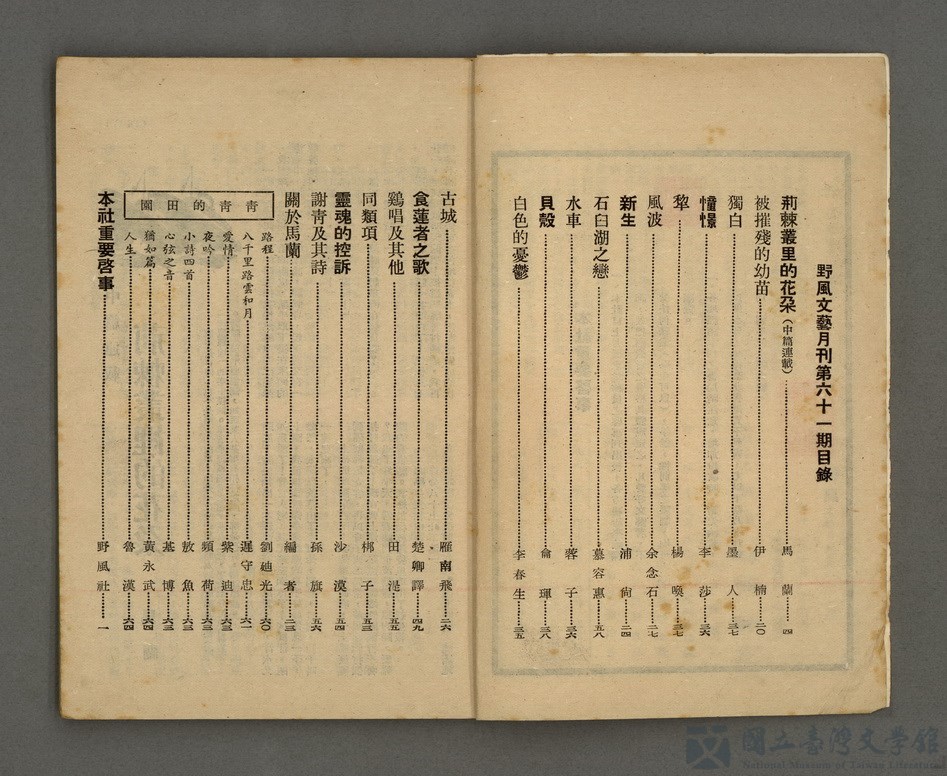 野風文藝月刊第六十一期目錄
荊棘叢里的花朶(中篇連載)……馬蘭……四
被摧殘的幼苗……伊楠……二〇
獨白……墨人……三七
憧憬……李莎……三六
犂……楊喚……三七
風波……余念石……二七
新生……浦尙……二四
石臼湖之戀……慕容惠……五八
水車……蓉子……三六
貝殼……俞琿……三八
白色的憂鬱……李春生……三五
古城……雁南飛……二六
食蓮者之歌……楚卿譯……四九
鷄唱及其他……田湜……五五
同類項……梆子……五三
靈魂的控訴……沙漠……五四
謝靑及其詩……孫旗……五六
關於馬蘭……編者……二三
靑靑的田園
路程……劉廸光……六〇
八千里路雲和月……遲守忠……六一
愛情……紫廸……六二
夜吟……頻荷……六三
小詩四首……敖魚……六三
心弦之音……基博……六三
猶如篇……黃永武……六四
人生……魯漢……六四
本社重要啓事……野風社……一
國立臺灣文學館
National Museum of Taiwan Literature